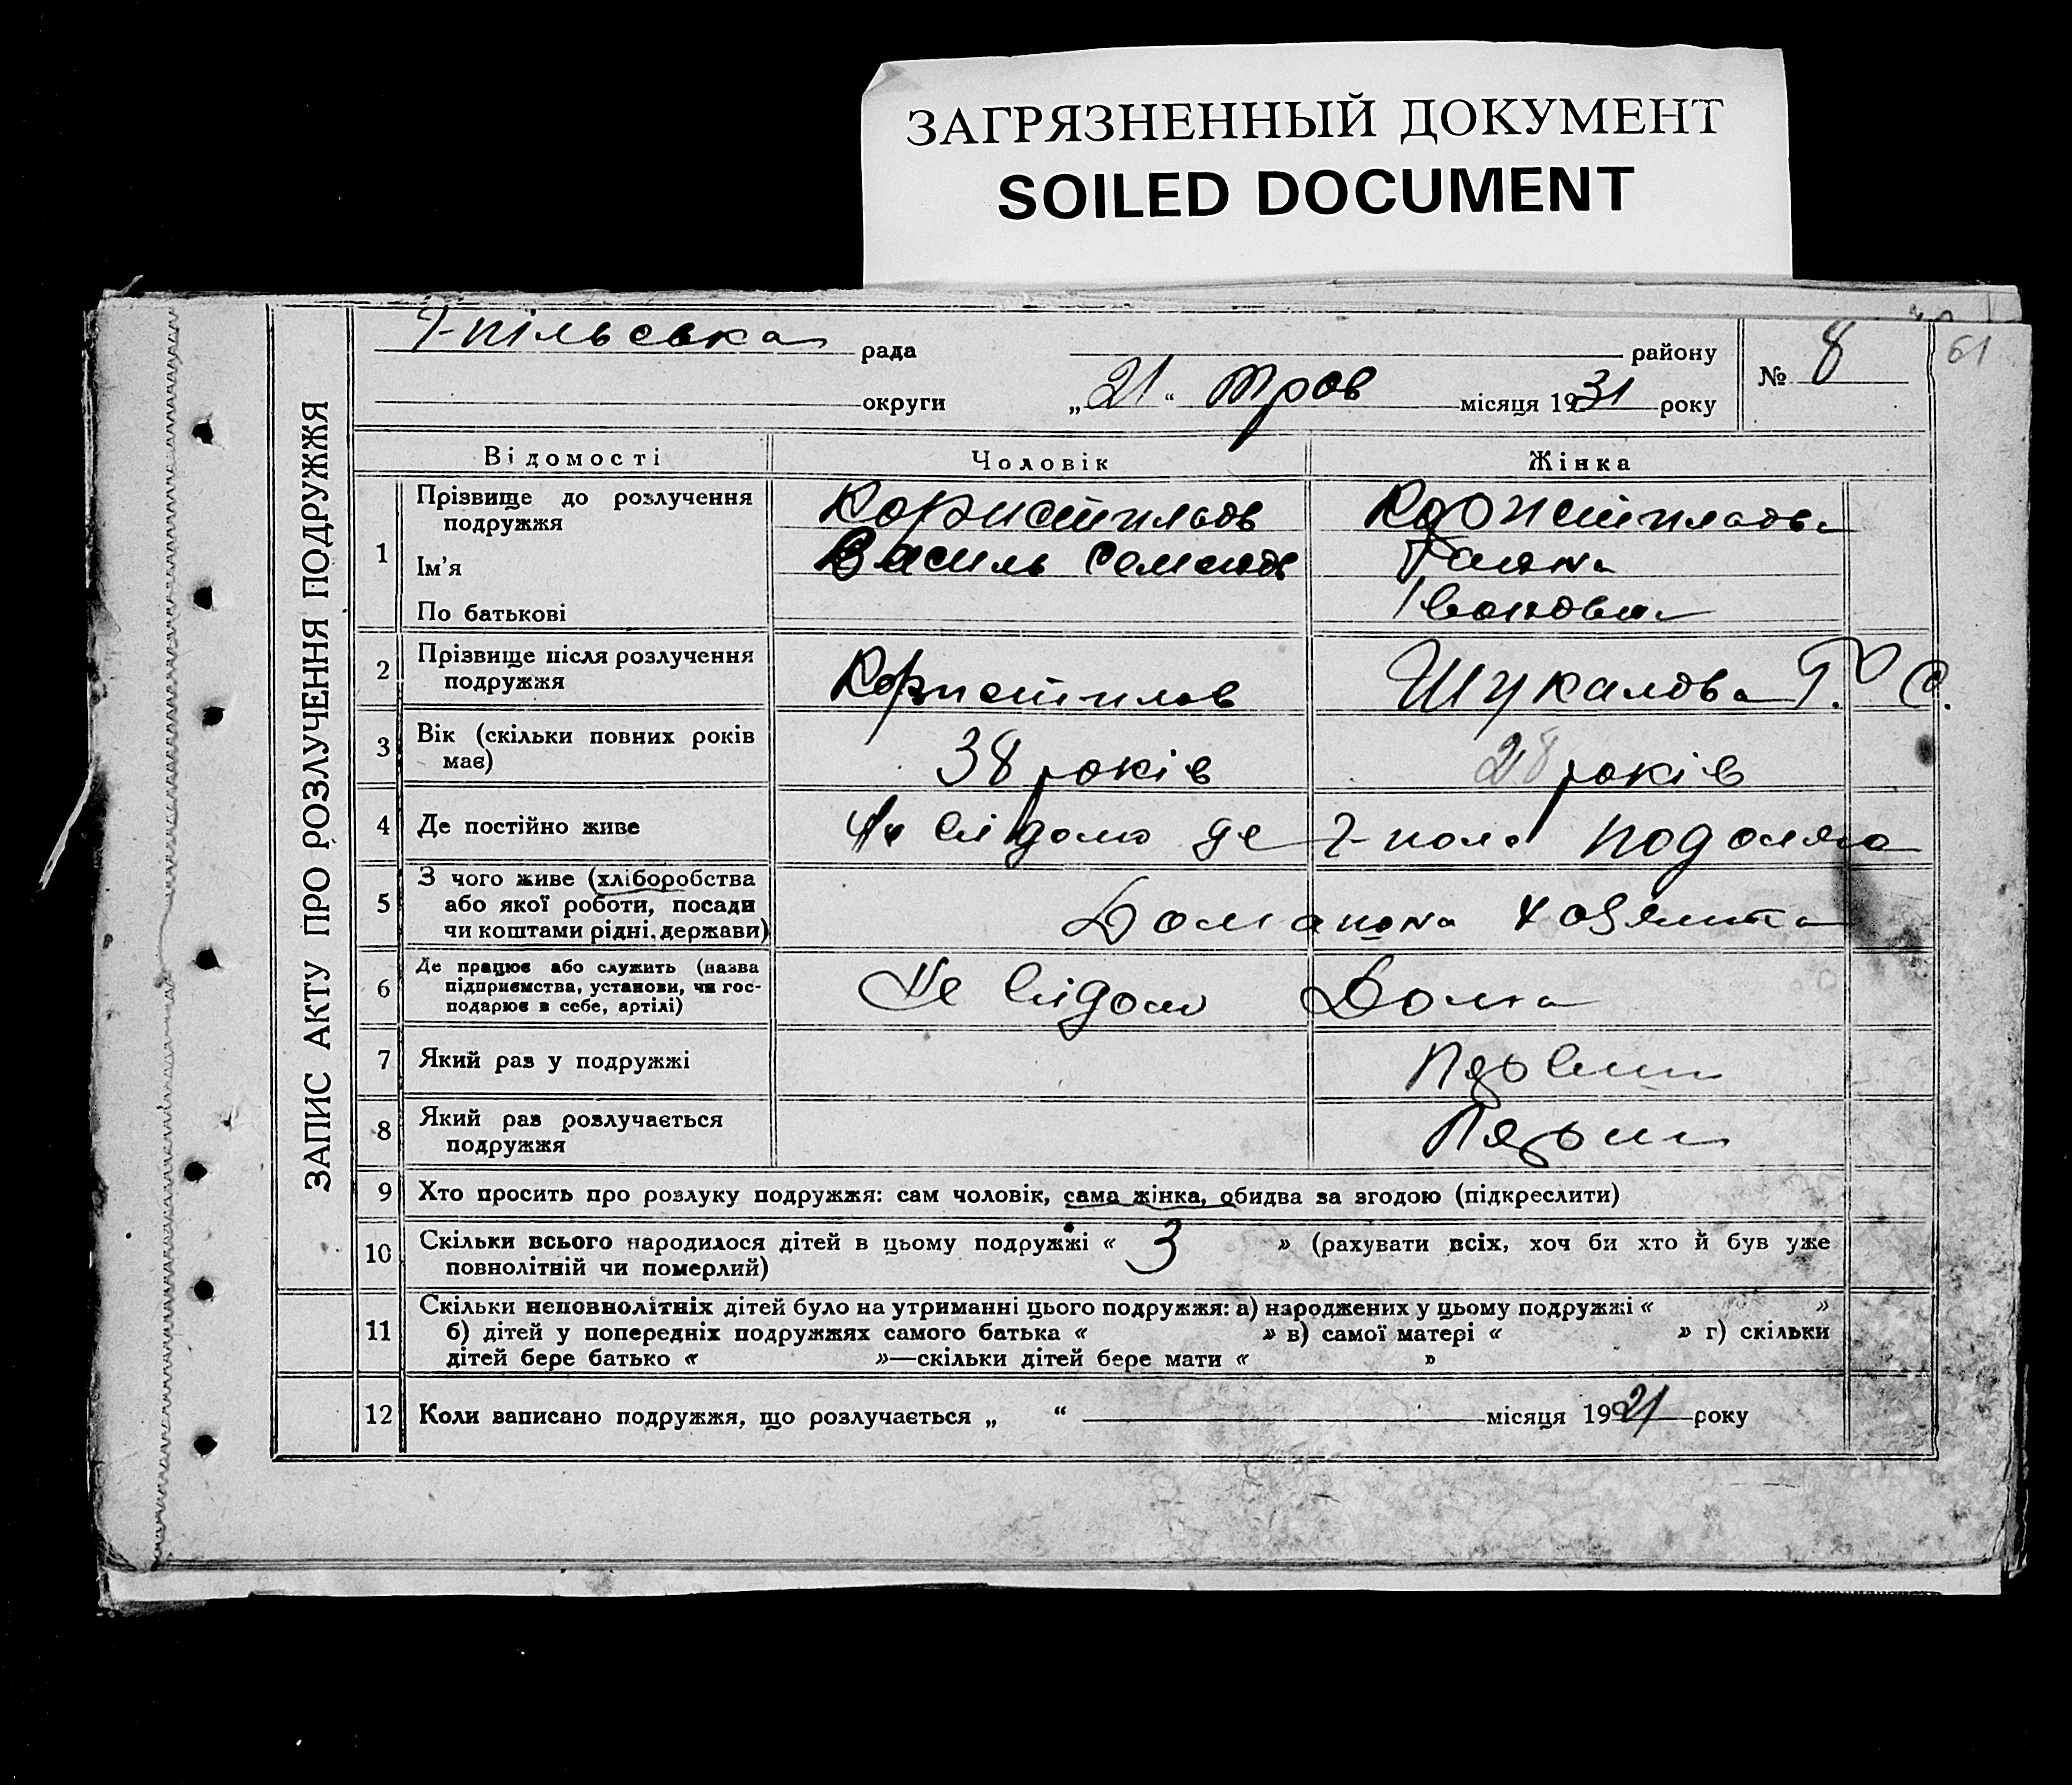 ЗАГРЯЗНЕННЫЙ ДОКУМЕНТ
SOILED DOCUMENT
ЗАПИС АКТУ ПРО РОЗЛУЧЕННЯ ПОДРУЖЖЯ
Г-пільська рада району
№ 8 61
округи „21“ трав місяця 1931 року
Відомості Чоловік Жінка
1 Прізвище до розлучення
подружжя
Ім'я Василь
По батькові Івановна
2 Прізвище після розлучення
подружжя Шукалова
3 Вік (скільки повних років
має) 38 років 28 років
4 Де постійно живе Не відомо де
5 З чого живе (хліборобства
або якої роботи, посади
чи коштами рідні, держави)
Домашня хозяйка
6 Де працює або служить (назва
підприємства, установи, чи гос-
подарює в себе, артілі)
Не відомо Дома
7 Який раз у подружжі
8 Який раз розлучається
подружжя
9 Хто просить про розлуку подружжя: сам чоловік, сама жінка, обидва за згодою (підкреслити)
10 Скільки всього народилося дітей в цьому подружжі « 3 » (рахувати всіх, хоч би хто й був уже
повнолітній чи померлий)
11 Скільки неповнолітніх дітей було на утриманні цього подружжя: а) народжених у цьому подружжі « »
б) дітей у попередніх подружжях самого батька « » в) самої матері « » г) скільки
дітей бере батько « »—скільки дітей бере мати « »
12 Коли записано подружжя, що розлучається „ “ місяця 1921 року